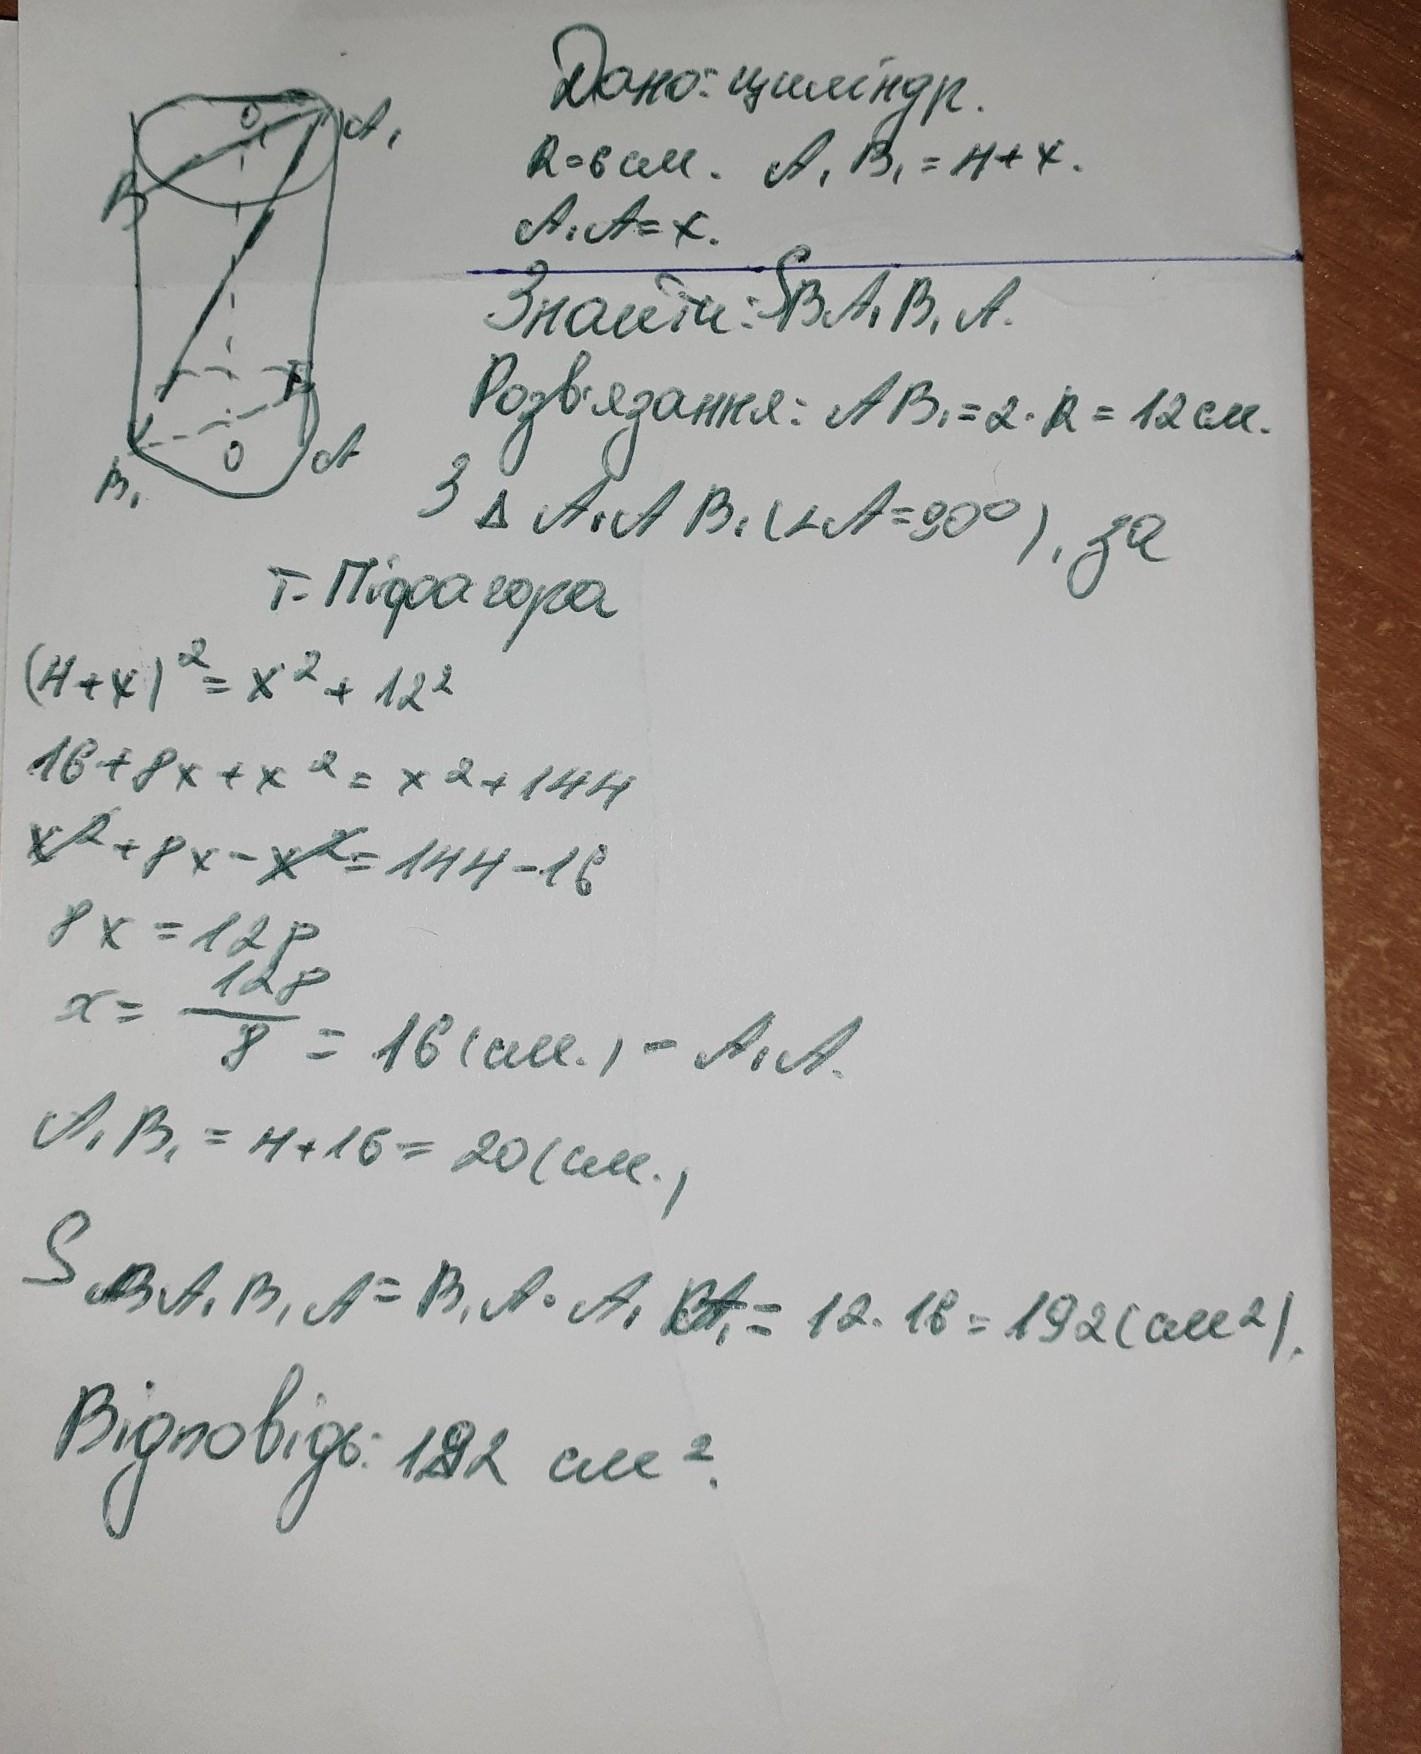 Дано: циліндр.
R=6 см. A₁B₁=4+x.
A₁A=x.
Знайти: SBA₁B₁A.
Розв'язання: AB₁=2·R=12см.
З Δ A₁AB₁(∠A=90°), за
т. Піфагора
(4+x)²=x²+12²
16+8x+x²=x²+144
x²+8x-x²=144-16
8x=128
x=128/8=16(см.)-A₁A.
A₁B₁=4+16=20(см.)
S BA₁B₁A=B₁A·A₁A=12·16=192(см²).
Відповідь: 192 см².
O₁
A₁
B
B₁
O
A